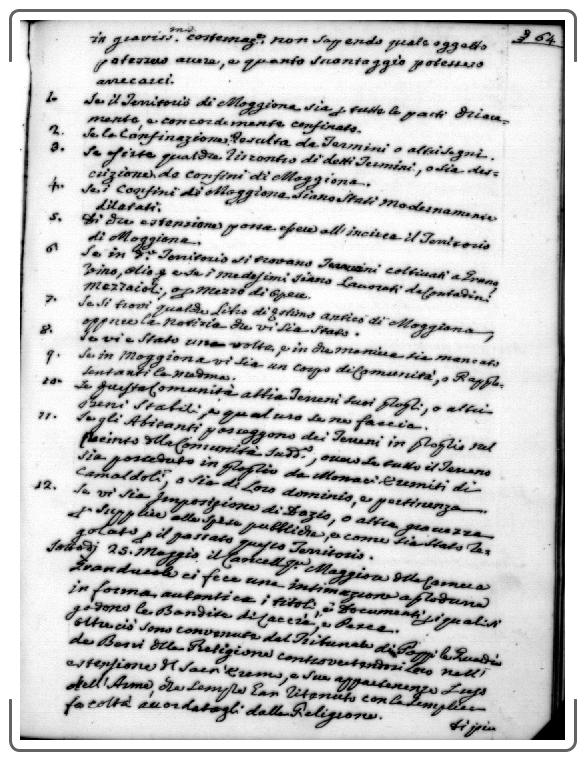 64
in graviss.ma costernaz.e non sapendo quale oggetto
potesse avere, e quanto svantaggio potessero
arrecarci.
1. Se il Territorio di Moggiona sia p. tutte le parti
mente, e concordemente confinato.
2. Se la Confinazione, resulta da Termini o altri Segni.
3. Se esista qualche riscontro di detti Termini, o sia des-
crizione de confini di Moggiona.
4. Se i Confini di Moggiona siano Stati modernamente
dilatati.
5. Di che estensione possa essere all' incirca il Territorio
di Moggiona.
6. Se in d.o Territorio si trovano Terreni coltivati a Grano
Vino, Olio & e se i medesimi siano Lavorati da Contadini
Mezzaioli, o p. mezzo di Opere.
7. Se si trovi qualche Libro di Estimo antico di Moggiona,
oppure la Notizia che vi sia Stato.
8. Se vi è Stato una volta, e in che maniera sia mancato
9. Se in Moggiona vi sia un Corpo di Comunità, o Rappre-
sentanti la medma.
10. Se questa Comunità abbia Terreni suoi proprj, o altri
Beni Stabili, e qual uso se ne faccia.
11. Se gli Abitanti posseggono dei Terreni in proprio nel
recinto della Comunità Sudd.a, ovvero se tutto il Terreno
sia posseduto in proprio da Monaci Eremiti di
Camaldoli, o sia di Loro dominio, e pertinenza.
12. Se vi sia Imposizione di Dazio, o altra gravezza
p. supplire alle spese pubbliche, e come sia Stato re-
golato p. il passato questo Territorio.
25. Maggio il Cancell.e Maggiore della Camera
Granducale ci fece una intimazione a produrre
in forma autentica i titoli, e Documenti, p. i quali si
godono le Bandite di Caccia, e Pesca.
Oltre ciò sono convenute dal Tribunale di Poppi le Guardie
de Beni della Religione controvertendosi Loro nell'
estensione del Sacr' Eremo, e sue appartenenze l'uso
dell' Armi, che sempre han ritenuto con le semplici
facoltà accordategli dalla Religione.
di piu